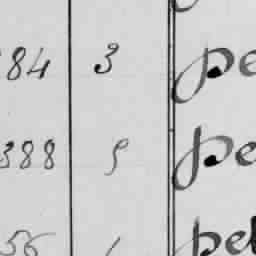 84 3 pe
388 9 pe
56 1 pe